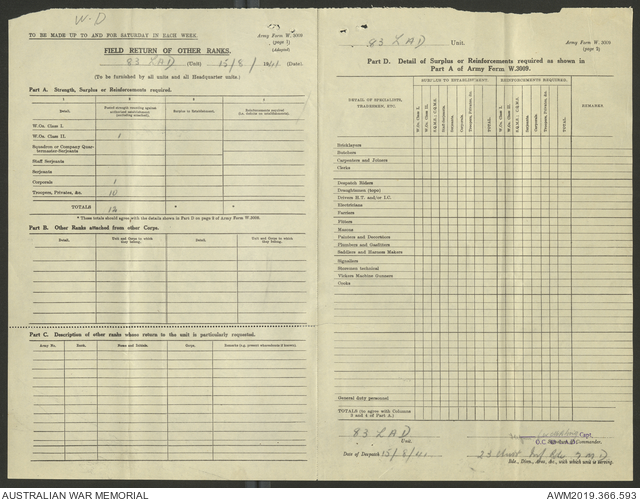 W-D
TO BE MADE UP TO AND FOR SATURDAY IN EACH WEEK.
Army Form W. 3009
(page 1)
(Adapted)
FIELD RETURN OF OTHER RANKS.
83 LAD (Unit) 15/8/1941. (Date).
(To be furnished by all units and all Headquarter units.)
Part A. Strength, Surplus or Reinforcements required.
1 2 3 4
Detail. Posted strength counting against authorized establishment (including attached). Surplus to Establishment. Reinforcements required
W.Os. Class I.
W.Os. Class II. 1
Squadron or Company Quar-
termaster-Serjeants
Staff Serjeants
Serjeants
Corporals 1
Troopers, Privates, &c. 10
TOTALS 12 * *
* These totals should agree with the details shown in Part D on page 2 of Army Form W.3009.
Part B. Other Ranks attached from other Corps.
Detail. Unit and Corps to which they belong. Detail. Unit and Corps to which they belong.
Part C. Description of other ranks whose return to the unit is particularly requested.
Army No. Rank. Name and Initials. Corps. Remarks
83 LAD Unit.
Army Form W. 3009
(page 2)
Part D. Detail of Surplus or Reinforcements required as shown in
Part A of Army Form W.3009.
DETAIL OF SPECIALISTS, TRADESMEN, ETC.
SURPLUS TO ESTABLISHMENT. REINFORCEMENTS REQUIRED. REMARKS
W.Os. Class I. W.Os. Class II. Staff-Serjeants Serjeants. Corporals. Troopers, Privates, &c. TOTAL. W.Os. Class I. W.Os. Class II. Serjeants. Corporals. Troopers, Privates, &c. TOTAL.
Bricklayers
Butchers
Carpenters and Joiners
Clerks
Despatch Riders
Draughtsmen (topo)
Drivers H.T. and/or I.C.
Electricians
Farriers
Fitters
Masons
Painters and Decorators
Plumbers and Gasfitters
Saddlers and Harness Makers
Signallers
Storemen technical
Vickers Machine Gunners
Cooks
General duty personnel
TOTALS (to agree with Columns
3 and 4 of Part A.)
83 LAD
Unit.
Capt.
O.C. Commander.
Date of Despatch 15/8/41.
23
Bde., Divn., Area, &c., with which unit is serving.
AUSTRALIAN WAR MEMORIAL
AWM2019.366.593